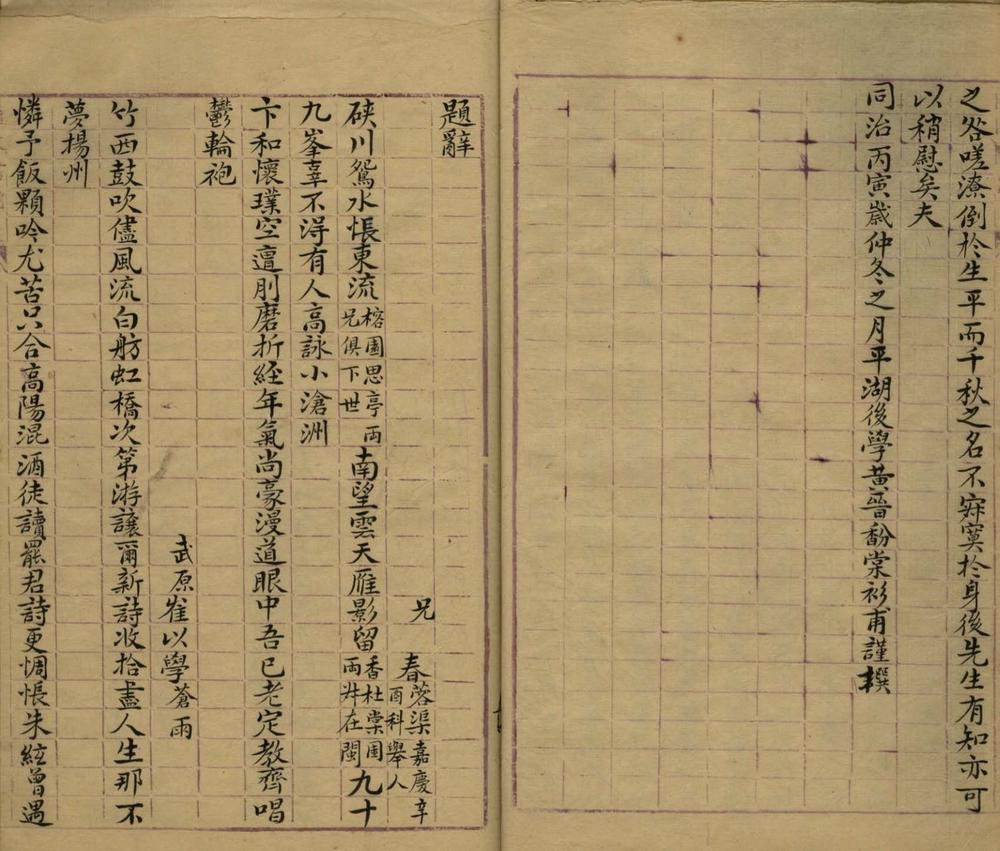 之咎嗟潦倒於生平而千秋之名不寂寞於身後先生有知亦可
以稍慰矣夫
同治丙寅歲仲冬之月平湖後學黃晉馚棠衫甫謹撰
題辭
兄 春 蓉渠嘉慶辛酉科舉人
硤川鴛水悵東流 榕園思亭兩兄俱下世 南望雲天雁影留 香杜棠圃兩弟在閩 九十
九峯臺不得有人高詠小滄洲
卞和懷璞空遭刖磨折經年氣尚豪漫道眼中吾已老定教齊唱
鬱輪袍
武原崔以學蒼雨
竹西鼓吹儘風流白舫虹橋次第游讓爾新詩收拾盡人生那不
夢揚州
憐予飯顆吟尤苦只合高陽混酒徒讀罷君詩更惆悵朱絃曾遇